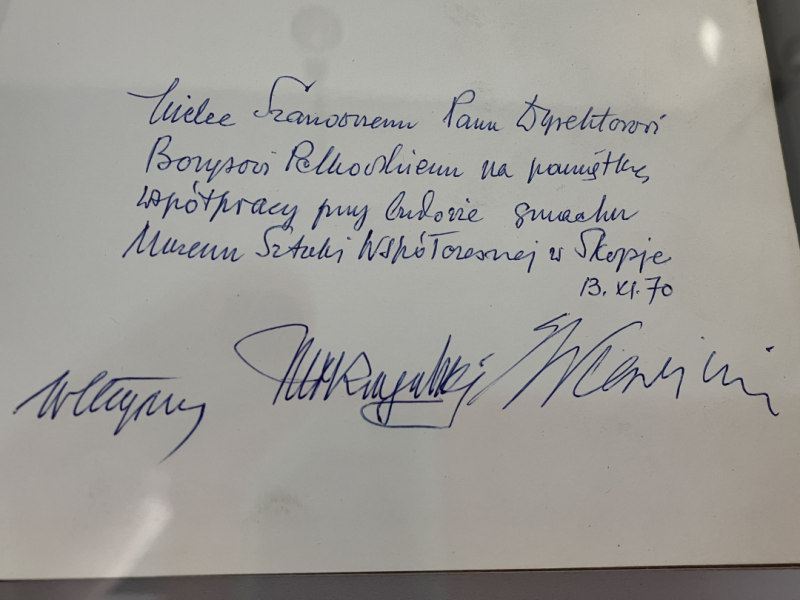 Wielce Szanownemu Panu Dyrektorowi
Borysowi Petkovskiemu na pamiątkę
współpracy przy budowie gmachu
Muzeum Sztuki Współczesnej w Skopje
13.XI.70